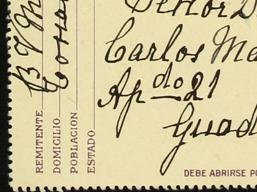 Carlos Ma
Apdo 21
Guad
REMITENTE
DOMICILIO
POBLACION
ESTADO
DEBE ABRIRSE PO